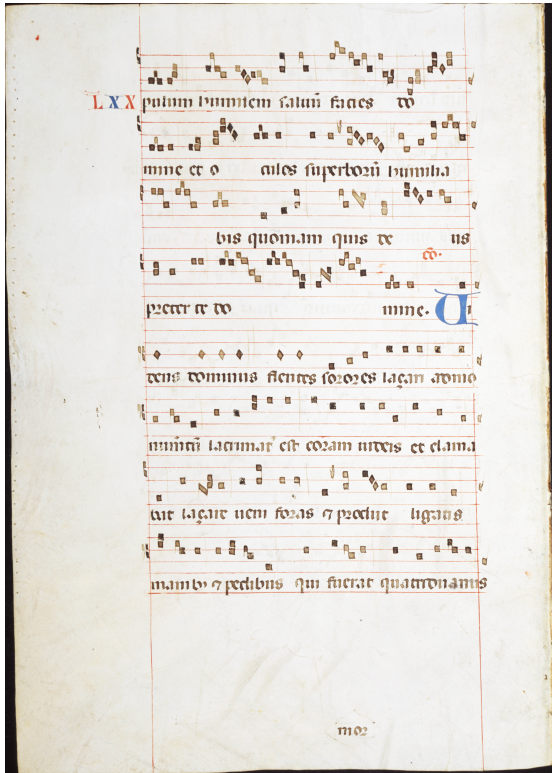 LXX pulum humilem saluū facies do
mine et o culos superborū humilia
bis quoniam quis de us
cō.
preter te do mine. Ui
dens dominus flentes sorores laçari ad mo
numētū lacrimatꝰ est coram iudeis et clama
bat laçare ueni foras ⁊ prodiit ligatis
manibꝫ ⁊ pedibus qui fuerat quatriduanus
mor